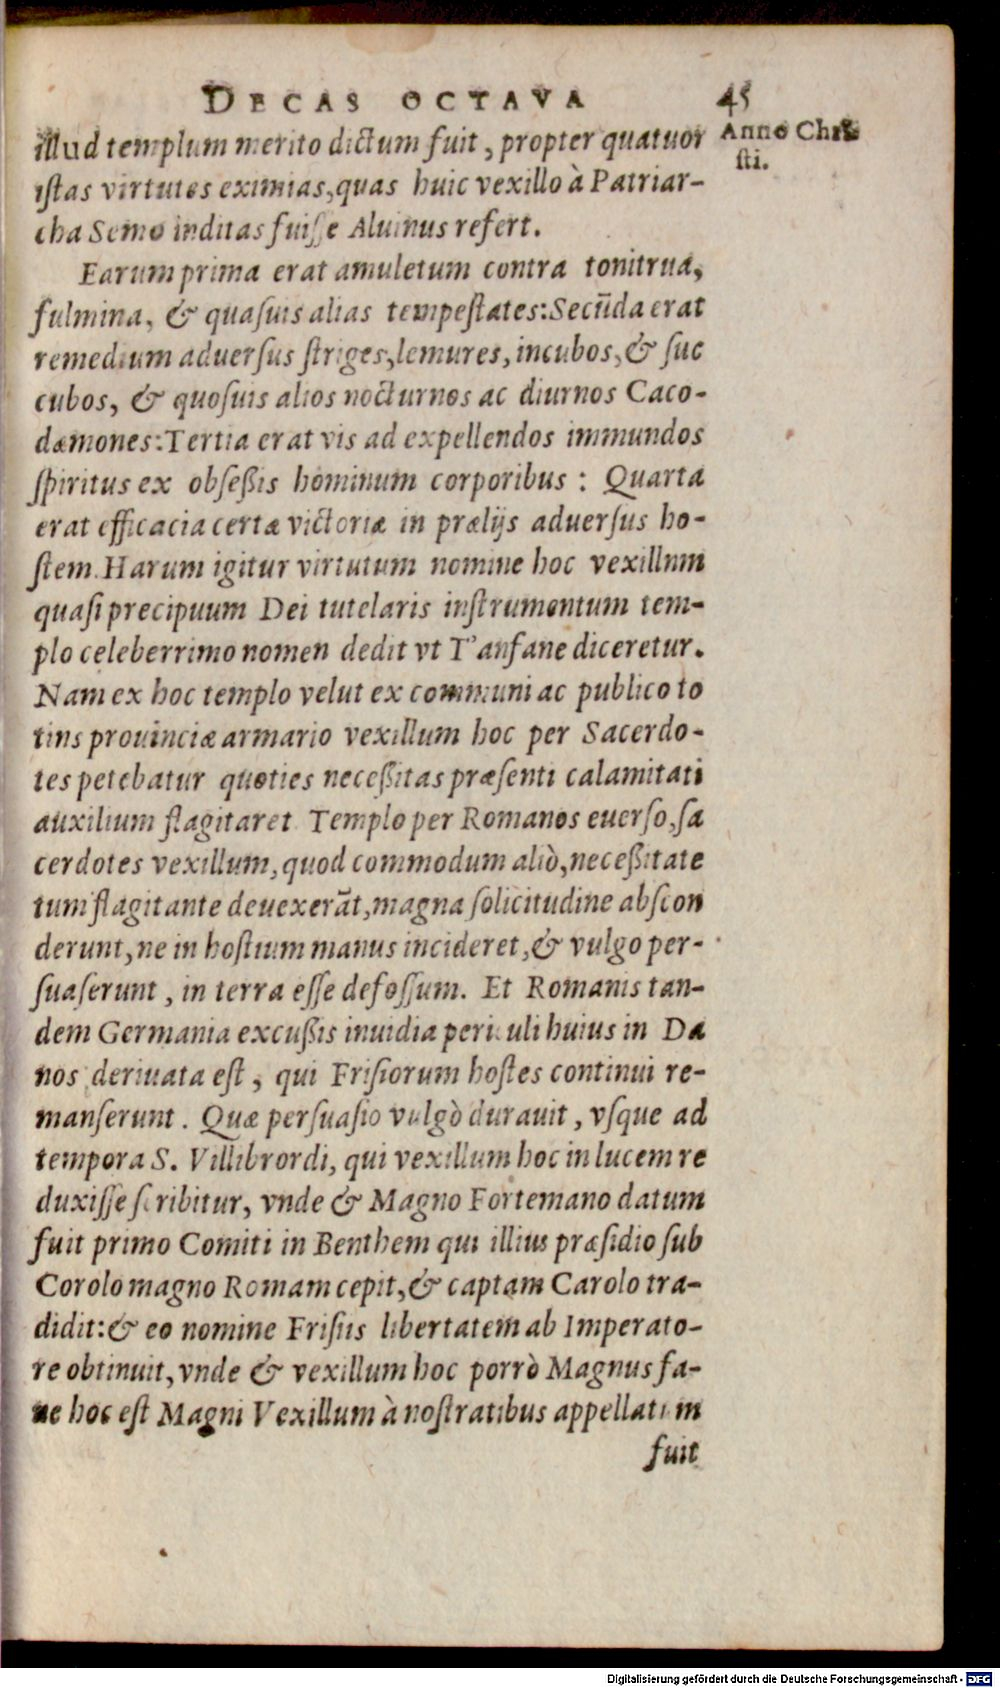 DECAS OCTAVA 45
Anno Chri
sti.
illud templum merito dictum fuit, propter quatuor
istas virtutes eximias, quas huic vexillo à Patriar-
cha Semo inditas fuisse Aluinus refert.
Earum prima erat amuletum contra tonitrua,
fulmina, & quasuis alias tempestates: Secūda erat
remedium aduersus striges, lemures, incubos, & suc
cubos, & quosuis alios nocturnos ac diurnos Caco-
dæmones: Tertia erat vis ad expellendos immundos
spiritus ex obseßis hominum corporibus : Quarta
erat efficacia certæ victoriæ in prælijs aduersus ho-
stem. Harum igitur virtutum nomine hoc vexillnm
quasi precipuum Dei tutelaris instrumentum tem-
plo celeberrimo nomen dedit vt T'anfane diceretur.
Nam ex hoc templo velut ex communi ac publico to
tins prouinciæ armario vexillum hoc per Sacerdo-
tes petebatur quoties neceßitas præsenti calamitati
auxilium flagitaret Templo per Romanos euerso, sa
cerdotes vexillum, quod commodum aliò, neceßitate
tum flagitante deuexerāt, magna solicitudine abscon
derunt, ne in hostium manus incideret, & vulgo per-
suaserunt, in terra esse defossum. Et Romanis tan-
dem Germania excußis inuidia periculi huius in Da
nos deriuata est, qui Frisiorum hostes continui re-
manserunt. Quæ persuasio vulgò durauit, vsque ad
tempora S. Villibrordi, qui vexillum hoc in lucem re
duxisse scribitur, vnde & Magno Fortemano datum
fuit primo Comiti in Benthem qui illius præsidio sub
Corolo magno Romam cepit, & captam Carolo tra-
didit: & eo nomine Frisiis libertatem ab Imperato-
re obtinuit, vnde & vexillum hoc porrò Magnus fa-
ne hoc est Magni Vexillum à nostratibus appellatum
fuit
Digitalisierung gefördert durch die Deutsche Forschungsgemeinschaft - DFG